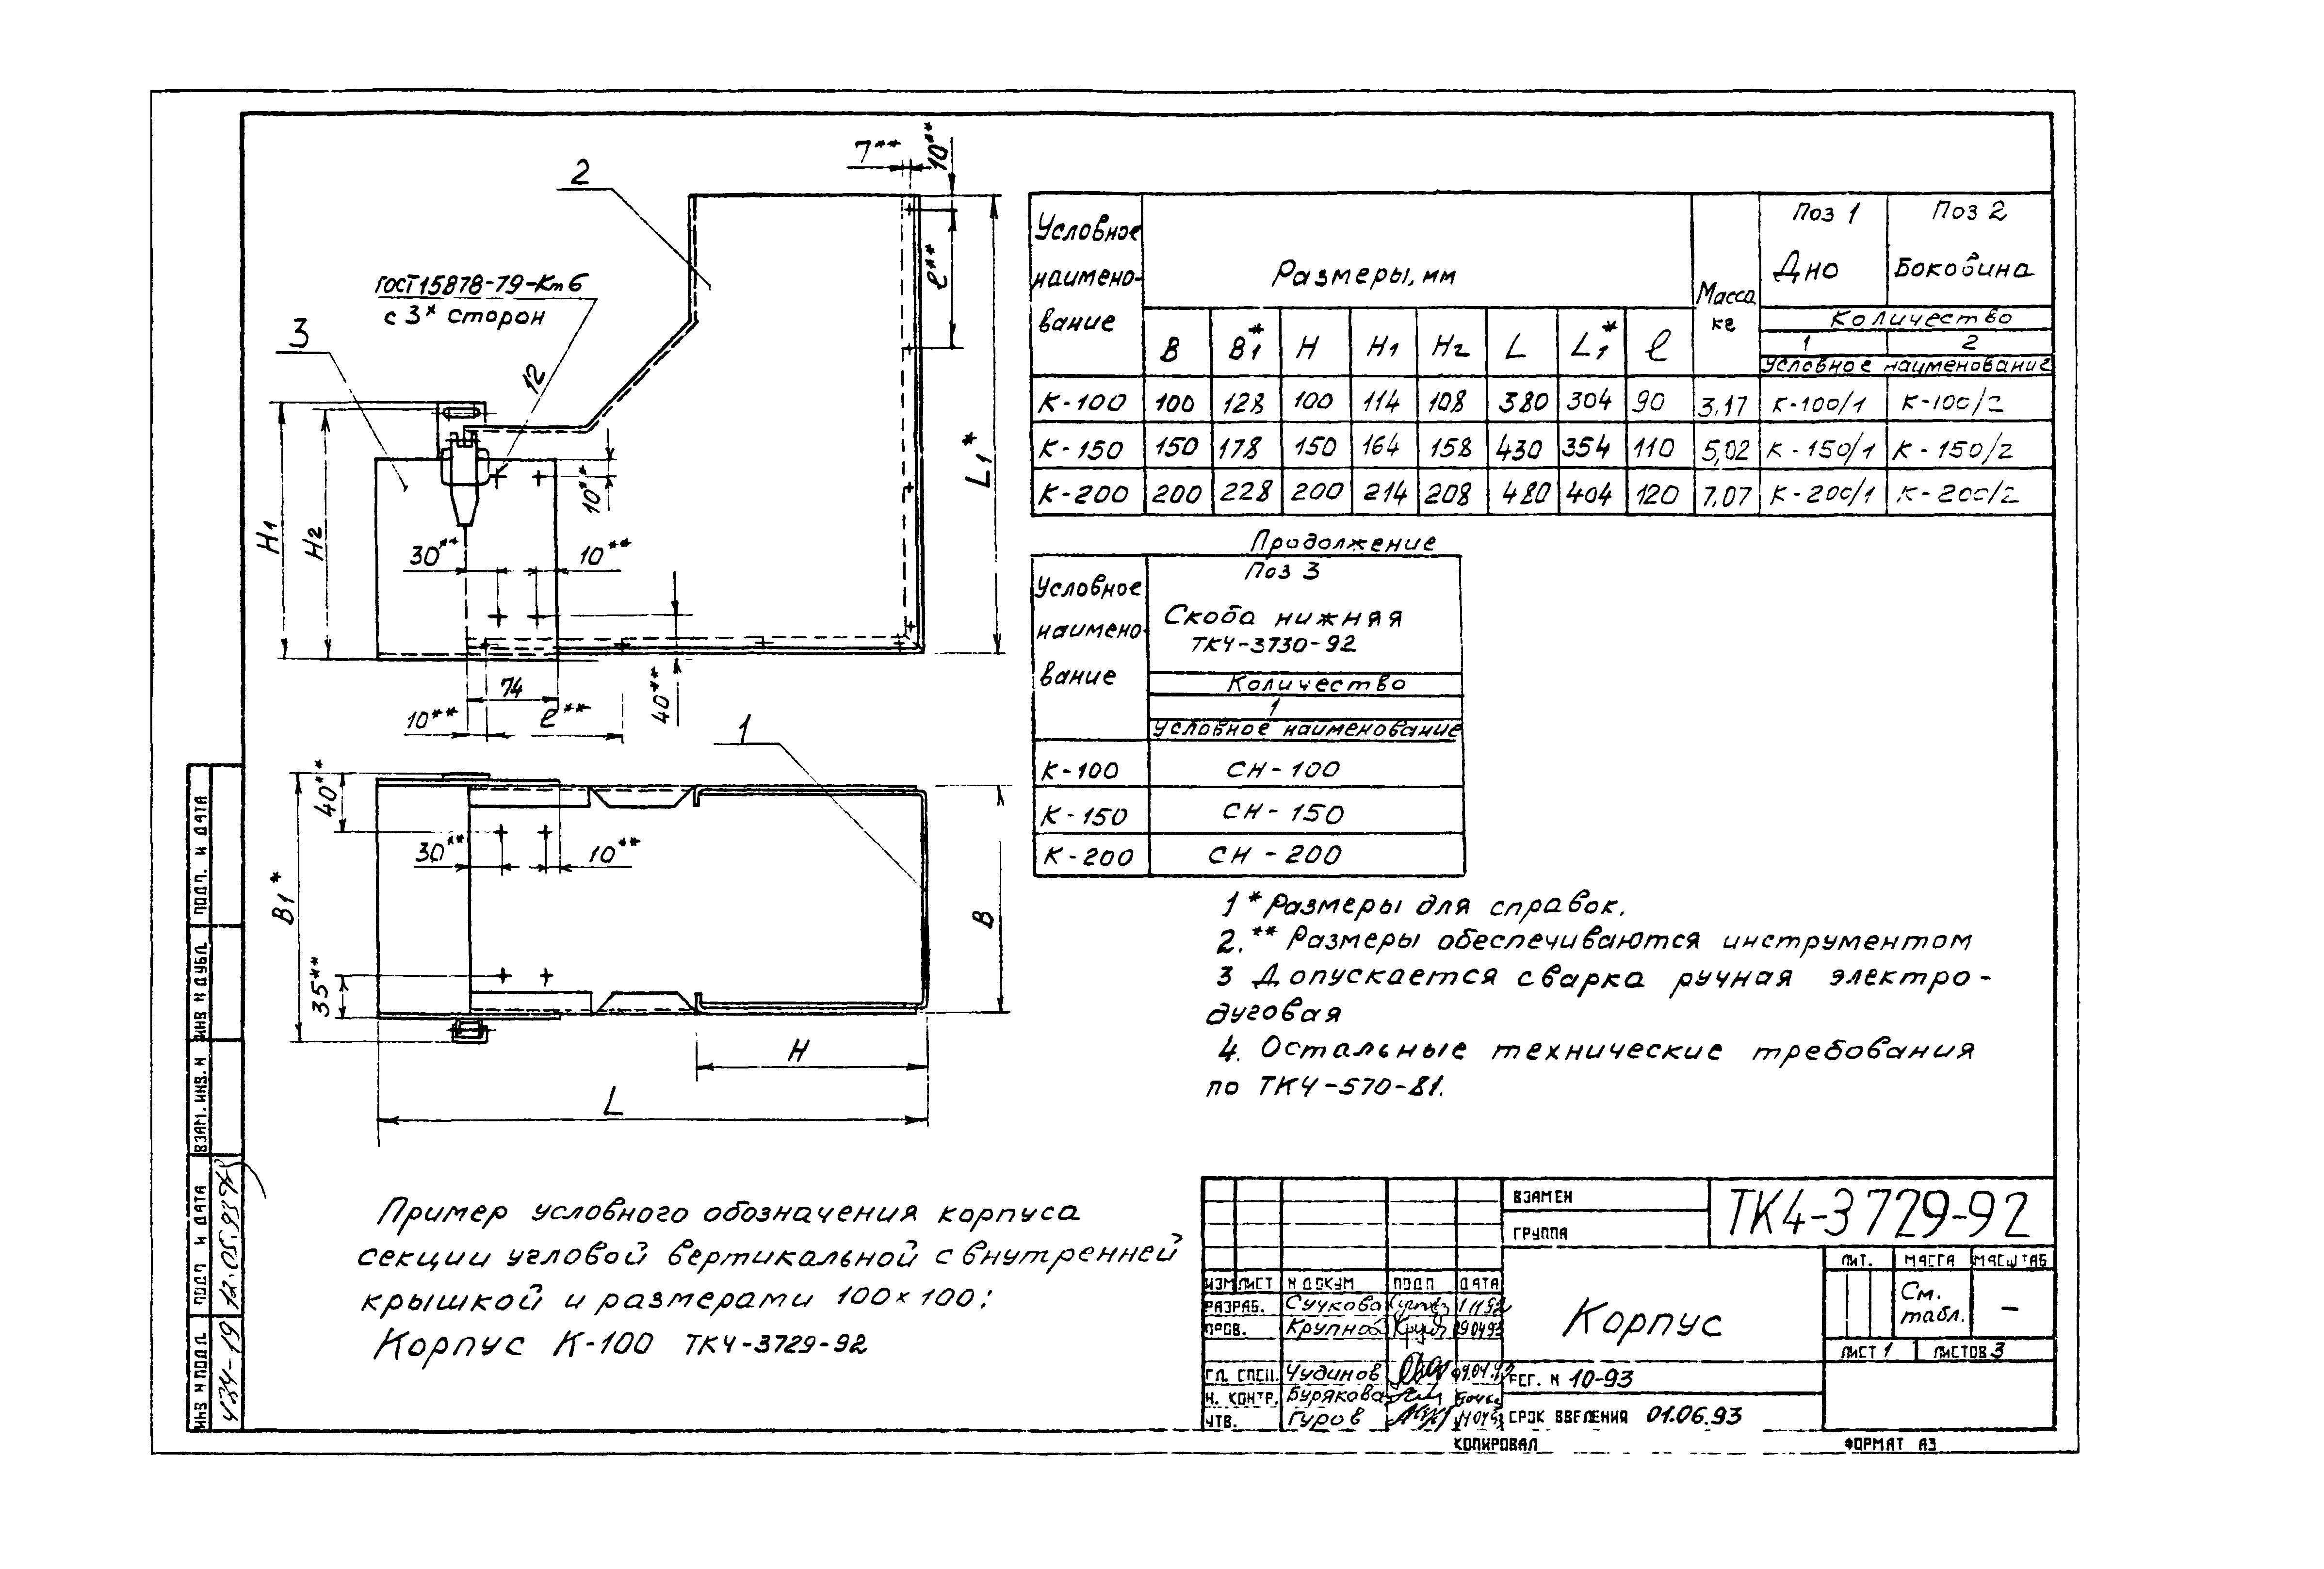 7** 10**
2
ГОСТ15878-79-Кт6
с 3х сторон
3
12
l**
L1*
10**
H1 H2
30** 10**
74
10** l** 40**
1
40**
30** 10**
B1*
B
35**
H
L
Условное наименование Размеры, мм Масса кг Поз 1 Дно Поз 2 Боковина
Количество
1 2
Условное наименование
B B1* H H1 H2 L L1* l
К-100 100 128 100 114 108 380 304 90 3,17 К-100/1 К-100/2
К-150 150 178 150 164 158 430 354 110 5,02 К-150/1 К-150/2
К-200 200 228 200 214 208 480 404 120 7,07 К-200/1 К-200/2
Продолжение
Условное наименование Поз 3
Скоба нижняя
ТК4-3730-92
Количество
1
Условное наименование
К-100 СН-100
К-150 СН-150
К-200 СН-200
1 * Размеры для справок.
2. ** Размеры обеспечиваются инструментом
3 Допускается сварка ручная электро-
дуговая
4. Остальные технические требования
по ТК4-570-81.
Пример условного обозначения корпуса
секции угловой вертикальной с внутренней
крышкой и размерами 100×100:
Корпус К-100 ТК4-3729-92
ВЗАМЕН
ГРУППА
ТК4-3729-92
ЛИТ. МАССА МАСШТАБ
См. табл. –
Корпус
ЛИСТ 1 ЛИСТОВ 3
ИЗМ ЛИСТ N ДОКУМ ПОДП ДАТА
РАЗРАБ. Сучкова
ПРОВ. Крупнов
ГЛ. СПЕЦ. Чудинов
Н. КОНТР. Бурякова
УТВ. Гуров
РЕГ. N 10-93
СРОК ВВЕДЕНИЯ 01.06.93
КОПИРОВАЛ ФОРМАТ А3
ПОДП. И ДАТА
ИНВ N ДУБЛ.
ВЗАМ. ИНВ. N
ПОДП И ДАТА 12.05.93
ИНВ N ПОДЛ. 434-19